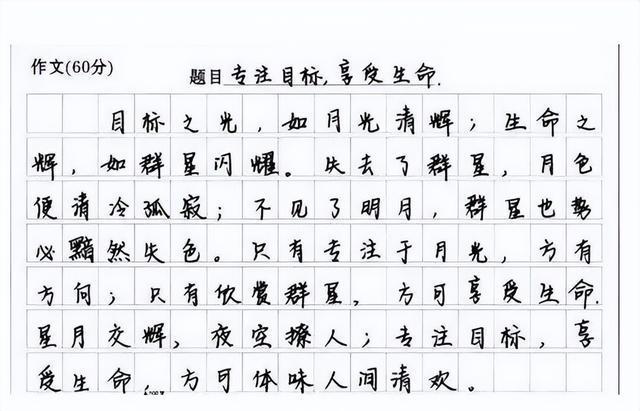 作文(60分)
题目 专注目标,享受生命.
目标之光,如月光清辉;生命之
辉,如群星闪耀。失去了群星,月色
便清冷孤寂;不见了明月,群星也势
必黯然失色。只有专注于月光,方有
方向;只有欣赏群星,方可享受生命.
星月交辉,夜空撩人;专注目标,享
受生命,方可体味人间清欢。